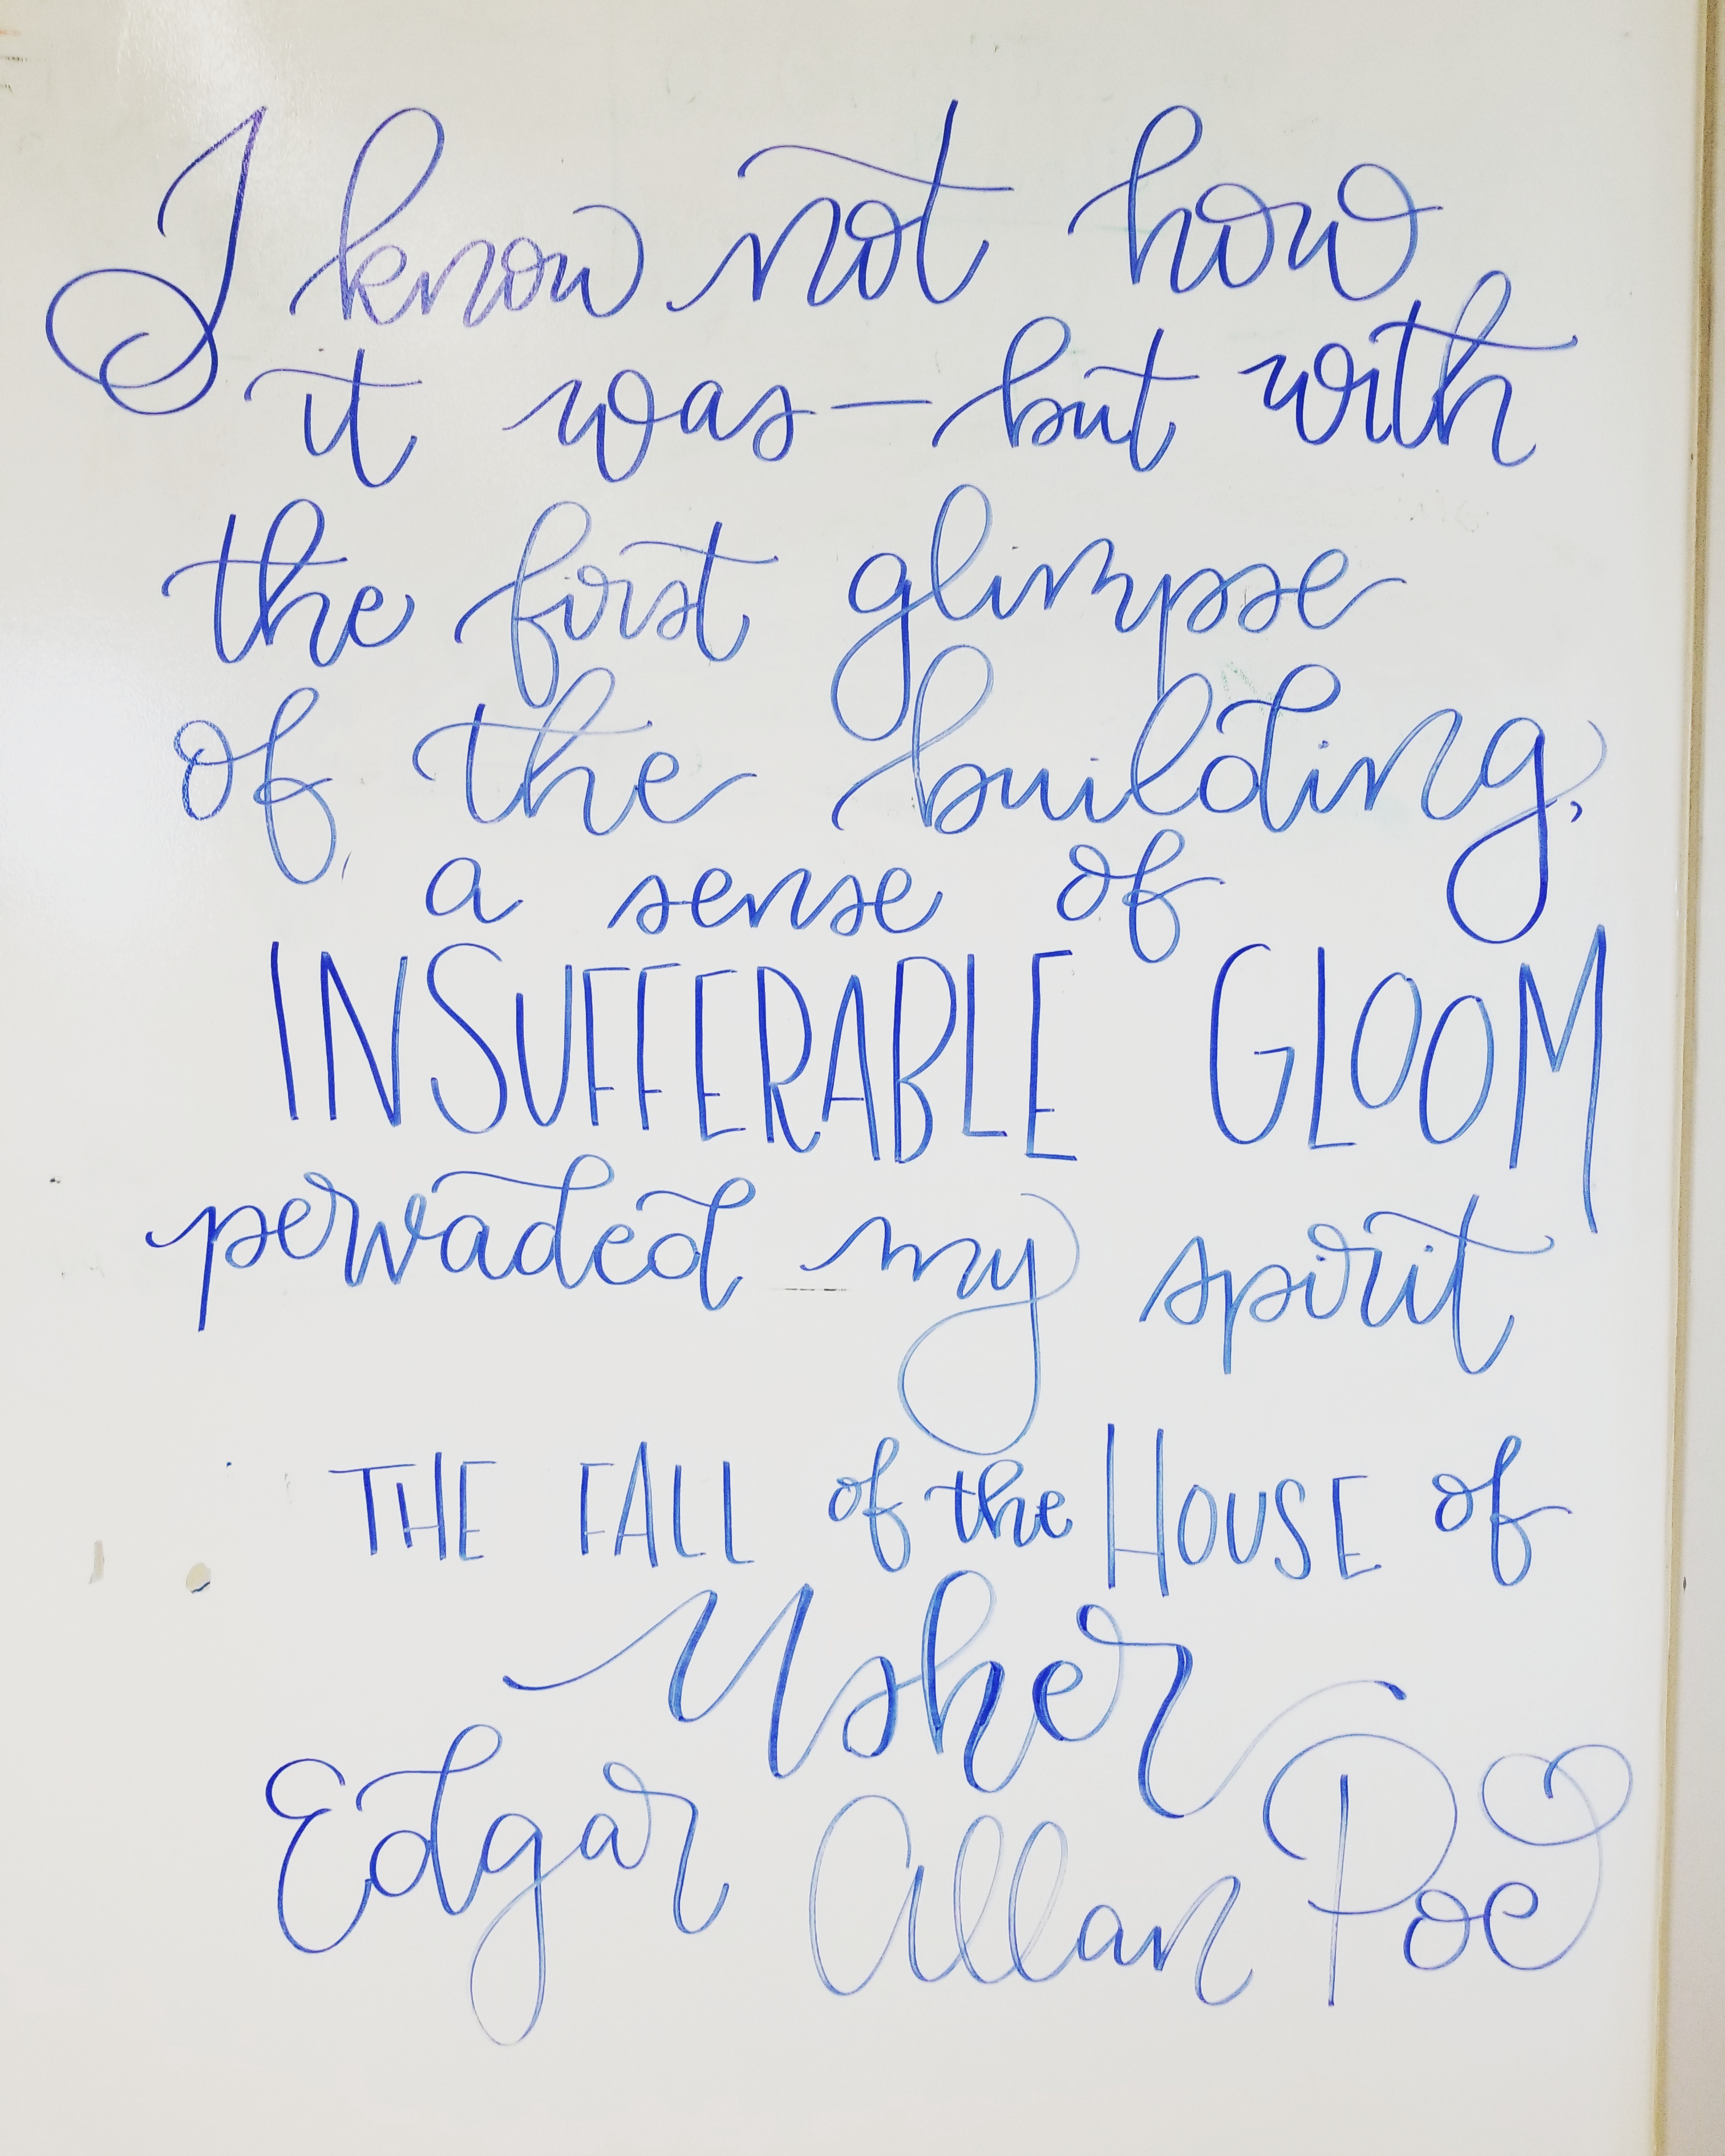 I know not how
it was—but with
the first glimpse
of the building,
a sense of
INSUFFERABLE GLOOM
pervaded my spirit
THE FALL of the HOUSE of
Usher
Edgar Allan Poe